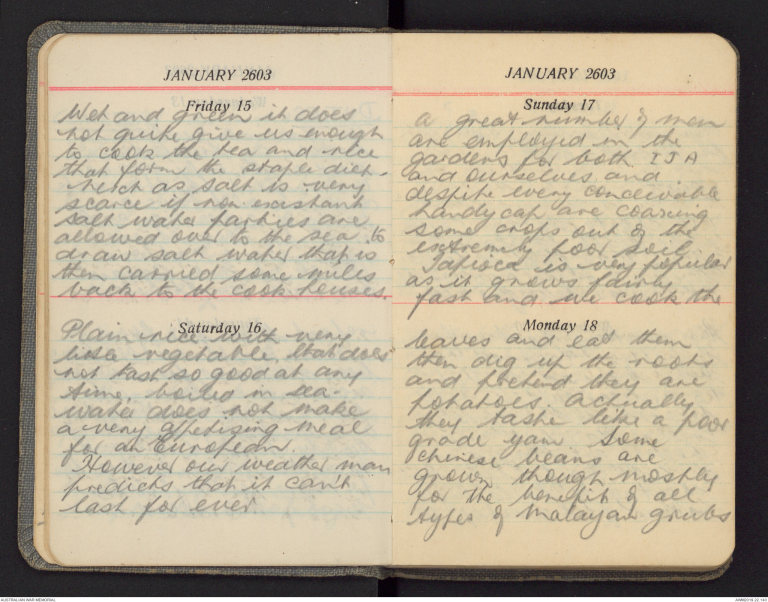 JANUARY 2603
Friday 15
Wet and green it does
not quite give us enough
to cook the tea and rice
that form the staple diet.
as salt is very
scarce if non existant
salt water parties are
allowed over to the sea to
draw salt water that is
then carried some miles
back to the cook houses.
Saturday 16
Plain rice with very
little vegetable, that does
not tast so good at any
time, boiled in sea-
water does not make
a very appetising meal
for an European.
However our weather man
predicts that it can't
last for ever.
JANUARY 2603
Sunday 17
a great number of men
are employed in the
gardens for both IJA
and ourselves and
despite every conceivable
handycap are coaxing
some crops out of the
extremely poor soil.
Tapioca is very popular
as it grows fairly
fast and we cook the
Monday 18
leaves and eat them
then dig up the roots
and pretend they are
potatoes. Actually
they taste like a poor
grade yam some
chinese beans are
grown though mostly
for the benefit of all
types of Malayan grubs
AUSTRALIAN WAR MEMORIAL